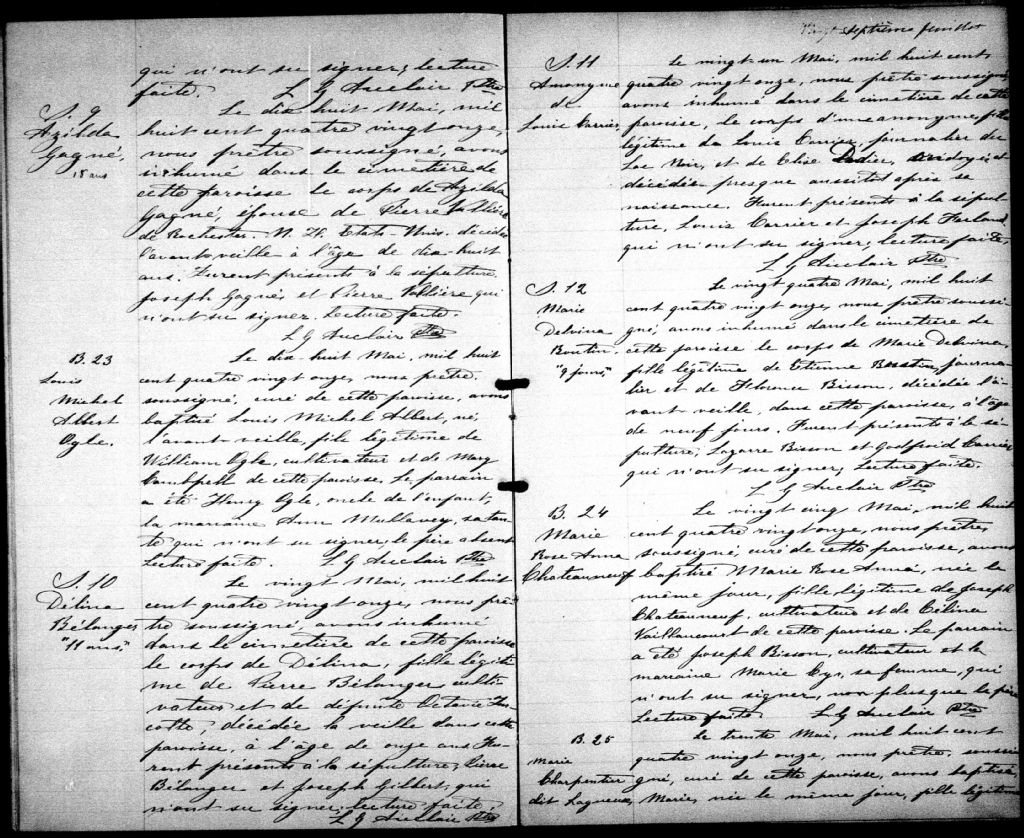 qui n'ont su signer, lecture
faite. L G Auclair Ptre
S. 9
Azilda
Gagné,
18 ans
Le dix huit Mai, mil
huit cent quatre vingt onze,
nous prêtre soussigné, avons
inhumé dans le cimetière de
cette paroisse le corps de Azilda
Gagné, épouse de Pierre Vallière
de Rochester. N. H. Etats-Unis. décédée
l'avant veille à l'âge de dix-huit
ans. Furent présents à la sépulture
Joseph Gagné, et Pierre Vallière qui
n'ont su signer. Lecture faite.
L G Auclair Ptre
B. 23
Louis
Michel
Albert
Ogle.
Le dix-huit Mai, mil huit
cent quatre vingt onze, nous prêtre
soussigné, curé de cette paroisse, avons
baptisé Louis Michel Albert, né
l'avant-veille, fils légitime de
William Ogle, cultivateur et de Mary
Campbell de cette paroisse. Le parrain
a été Henry Ogle, oncle de l'enfant,
la marraine Ann Mullavey, sa tan-
te qui n'ont su signer, le père absent
Lecture faite. L G Auclair Ptre
S. 10
Délina
Bélanger
"11 ans,"
Le vingt Mai, mil huit
cent quatre vingt onze, nous prê-
tre soussigné, avons inhumé
dans le cimetière de cette paroisse
le corps de Délina, fille légiti-
me de Pierre Bélanger culti-
vateur et de défunte Octavie Tur-
cotte, décédée la veille dans cette
paroisse, à l'âge de onze ans Fu-
rent présents à la sépulture, Pierre
Bélanger et Joseph Gilbert, qui
n'ont su signer. Lecture faite.
L G Auclair Ptre
Vingt septième feuillet
S. 11
Anonyme
de
Louis Carrier
Le vingt-un Mai, mil huit cent
quatre vingt onze, nous prêtre soussigné
avons inhumé dans le cimetière de cette
paroisse, le corps d'une anonyme, fille
légitime de Louis Carrier, journalier du
Lac Noir, et de Elise Dodier, ondoyée et
décédée presque aussitôt après sa
naissance. Furent présents à la sépul-
ture, Louis Carrier et Joseph Ferland
qui n'ont su signer, lecture faite,
L G Auclair Ptre
S. 12
Marie
Delvina
Boutin,
"9 jours,"
Le vingt quatre Mai, mil huit
cent quatre vingt onze, nous prêtre soussi-
gné, avons inhumé dans le cimetière de
cette paroisse le corps de Marie Delvina,
fille légitime de Etienne Boutin, journa-
lier et de Florence Bisson, décédée l'a-
vant-veille, dans cette paroisse, à l'âge
de neuf jours. Furent présents à la sé-
pulture, Lazarre Bisson et Godfroid Carrier
qui n'ont su signer, Lecture faite.
L G Auclair Ptre
B. 24
Marie
Rose Anna
Chateauneuf
Le vingt cinq Mai, mil huit
cent quatre vingt onze, nous prêtre
soussigné, curé de cette paroisse, avons
baptisé Marie Rose Anna, née le
même jour, fille légitime de Joseph
Chateauneuf, cultivateur et de Célina
Vaillancourt de cette paroisse. Le parrain
a été Joseph Bisson, cultivateur et la
marraine Marie Cyr, sa femme, qui
n'ont su signer, non plus que le père
Lecture faite L G Auclair Ptre
B. 25
Marie
Charpentier
dit Lagueux,
Le trente Mai, mil huit cent
quatre vingt onze, nous prêtre, soussi-
gné, curé de cette paroisse, avons baptisé
Marie, née le même jour, fille légitime